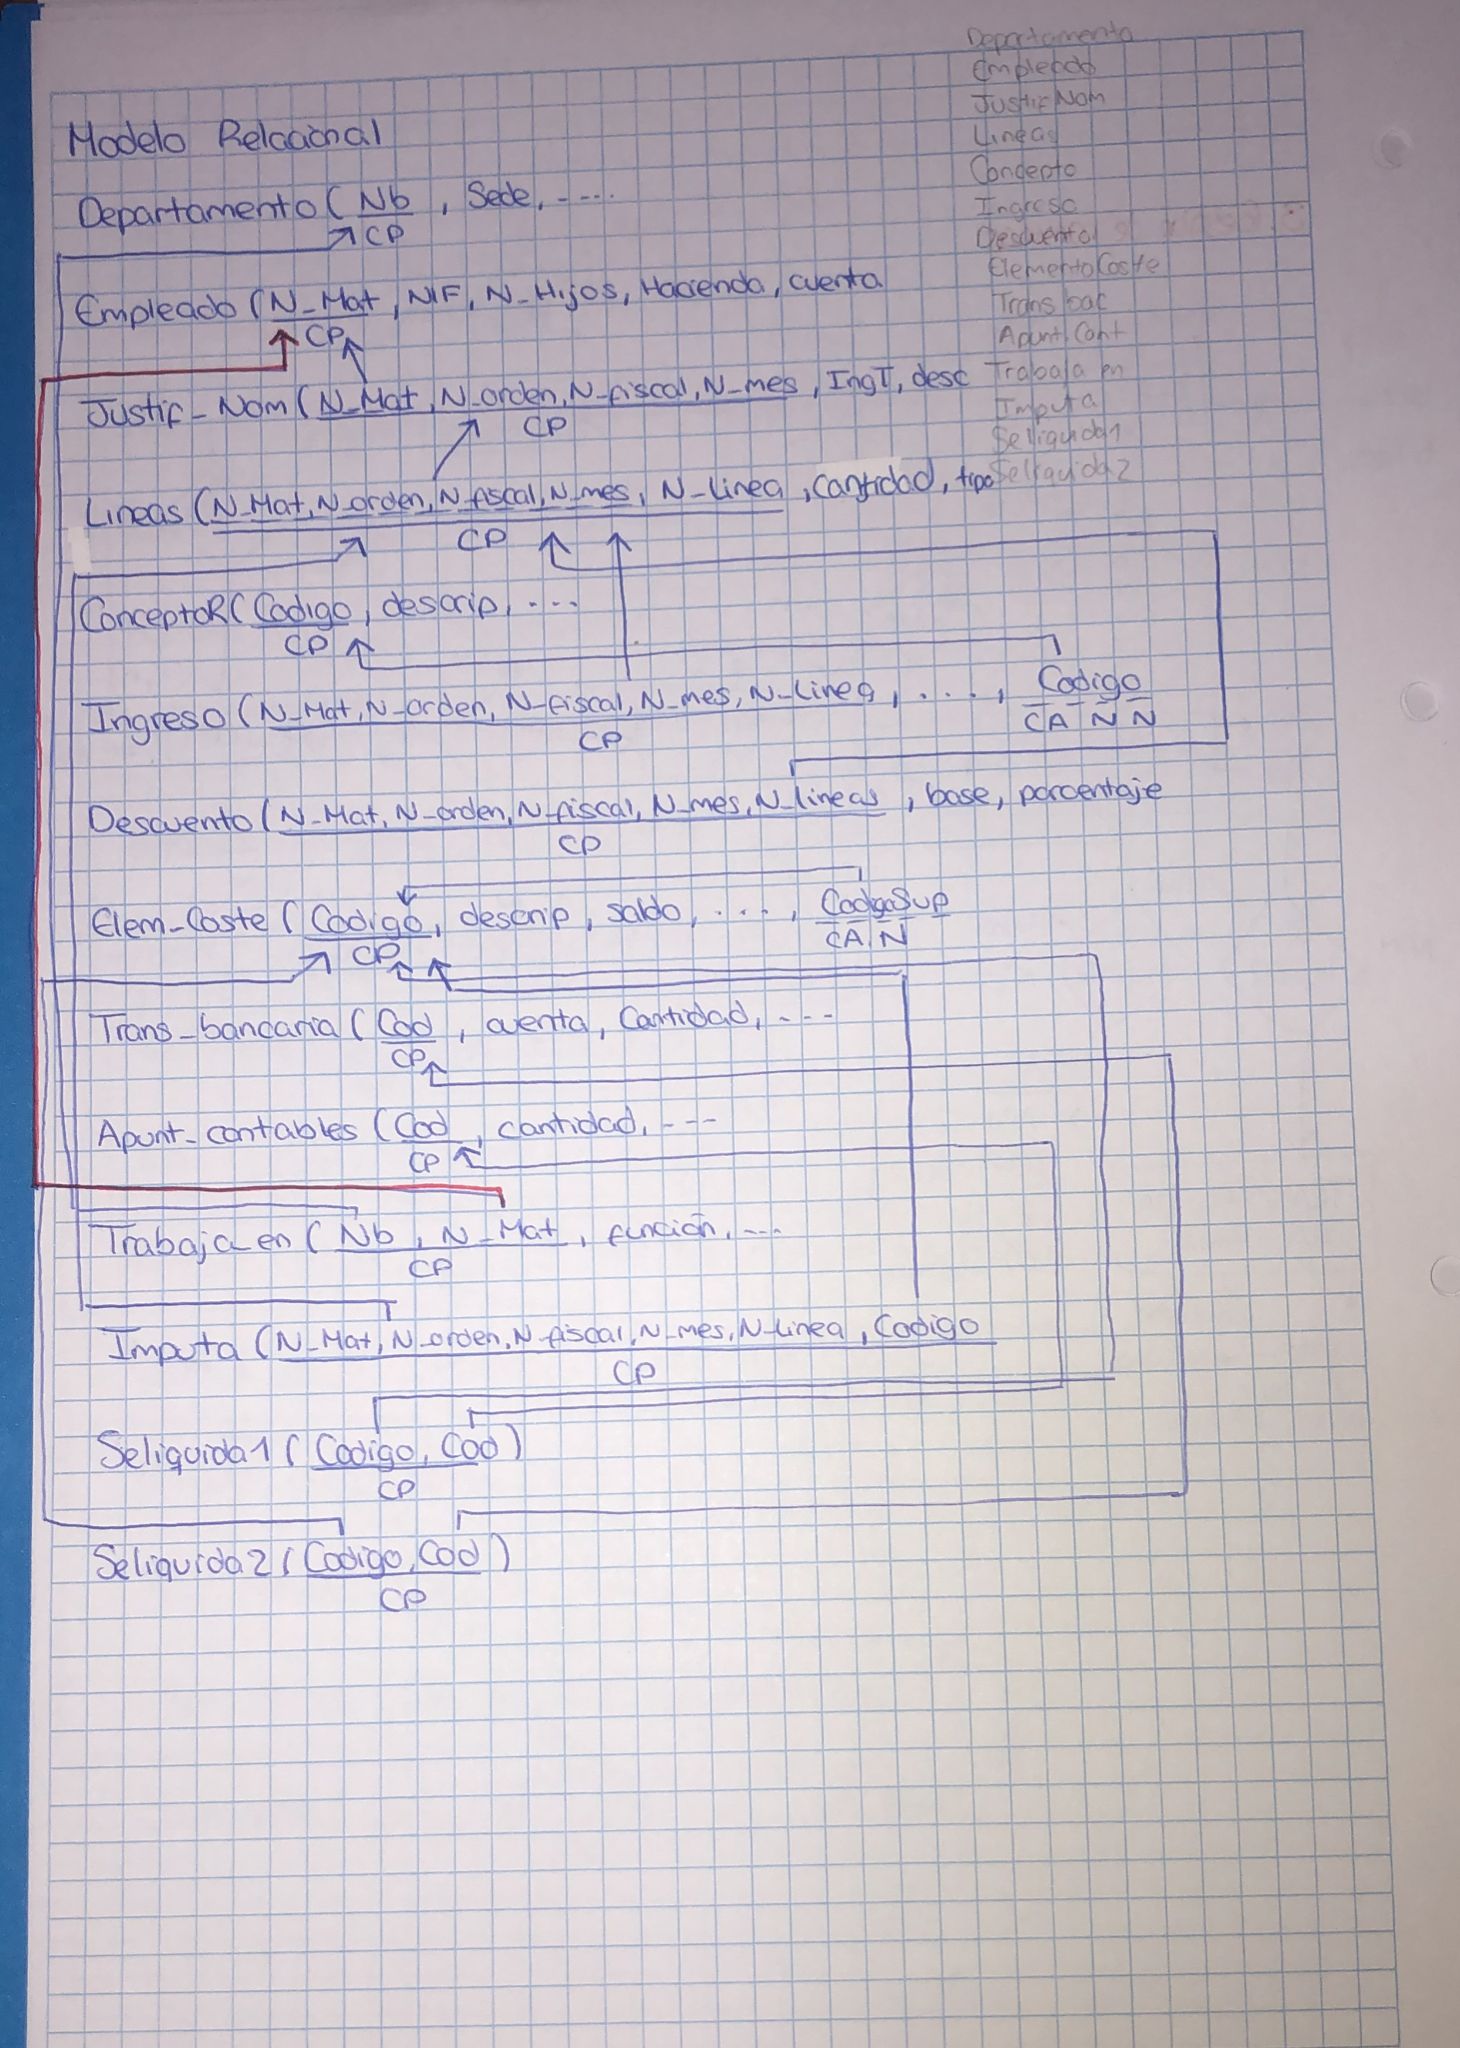 Modelo Relacional
Departamento ( Nb , Sede, ----
CP
Empleado ( N_Mat , NIF, N_Hijos, Hacienda, cuenta
CP
Justif_Nom ( N_Mat, N_orden, N_fiscal, N_mes , IngT, desc
CP
Lineas ( N_Mat, N_orden, N_fiscal, N_mes, N_Linea , cantidad, tipo
CP
ConceptoR ( Codigo, descrip, ....
CP
Ingreso ( N_Mat, N_orden, N_fiscal, N_mes, N_Linea, ...., Codigo
CP
CA N N
Descuento ( N_Mat, N_orden, N_fiscal, N_mes, N_lineas , base, porcentaje
CP
Elem_Coste ( Codigo, descrip, saldo, ...., CodigoSup
CP
CA N
Trans_bancaria ( Cod , cuenta, Cantidad, ---
CP
Apunt_contables ( Cod , cantidad, ---
CP
Trabaja_en ( Nb , N_Mat , función, ---
CP
Imputa ( N_Mat, N_orden, N_fiscal, N_mes, N_Linea , Codigo
CP
Seliquida1 ( Codigo, Cod )
CP
Seliquida2 ( Codigo, Cod )
CP
Departamento
Empleado
JustifNom
Lineas
Concepto
Ingreso
Descuento
ElementoCoste
Trans bac
Apunt. Cont
Trabaja en
Imputa
Seliquida1
Seliquida2